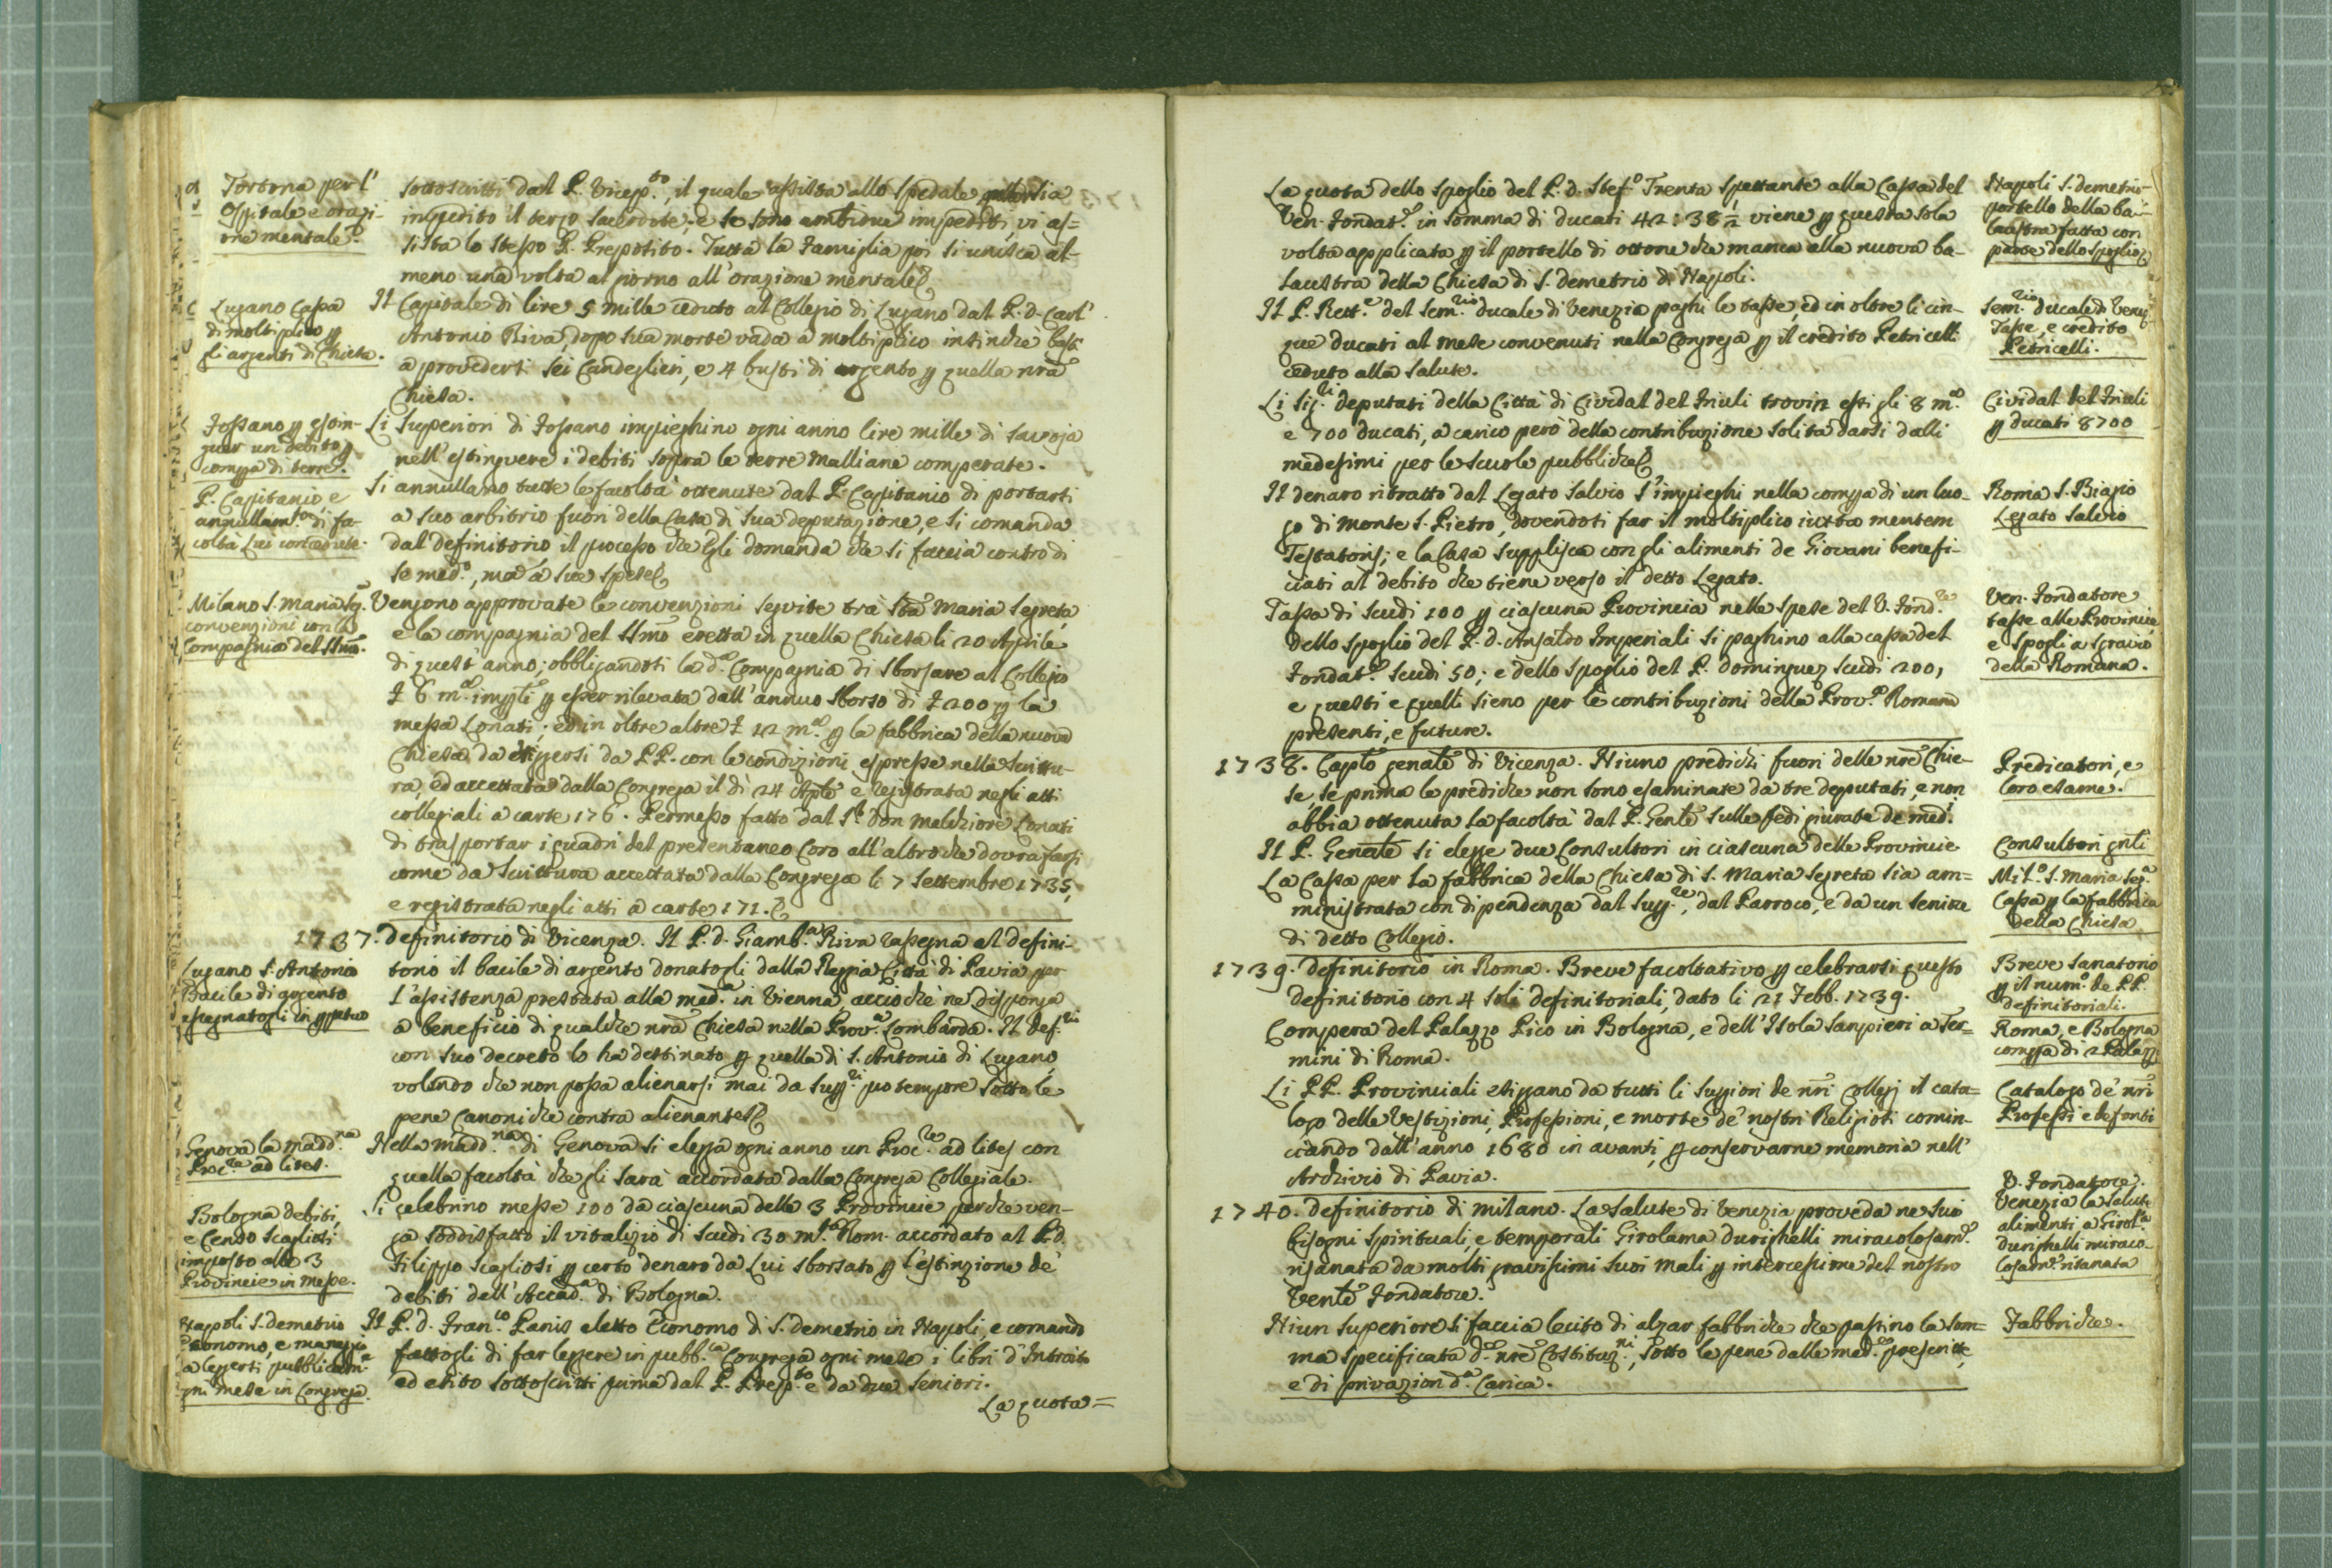 Tortona per l'
Ospitale e orazi-
one mentale.
sottoscritti dal P. Vicep.to, il quale assista allo spedale
impedito il terzo sacerdote; e se sono ambidue impediti, vi as=
sista lo stesso P. Preposito. Tutta la famiglia poi si unisca al-
meno una volta al giorno all'orazione mentale.
Lugano Cassa
di moltiplico p
gli argenti di Chiesa.
Il Capitale di lire 5 mille ceduto al Collegio di Lugano dal P. d. Carl'
Antonio Riva, dopo sua morte vada a moltiplico insinchè basti
a provederti sei Candeglieri, e 4 busti di argento p quella nrã
Chiesa.
Fossano p estin-
guer un debito p
compa di terre.
Li Superiori di Fossano impieghino ogni anno lire mille di Savoja
nell'estinguere i debiti sopra le terre Malliane comperate.
P. Capitanio e
annullam.to di fa-
coltà Lui concedute.
Si annullano tutte le facoltà ottenute dal P. Capitanio di portarsi
a suo arbitrio fuori della Casa di sua deputazione, e si comanda
dal Definitorio il processo che Egli domanda che si faccia contro di
se med.o, ma à sue spese.
Milano S. Maria Seg.
convenzioni con la
Compagnia del SSmo.
Vengono approvate le convenzioni seguite trà Sta Maria Segreta,
e la compagnia del SSmo eretta in quella Chiesa li 20 Aprile
di quest'anno; obbligandosi la d.a Compagnia di sborsare al Collegio
£ 6 m.a impli p esser rilevata dall'annuo sborso di £ 200 p la
messa Lonati; ed in oltre altre £ 12 m.a p la fabbrica della nuova
Chiesa da erigersi da PP. con le condizioni espresse nella Scrittu-
ra, ed accettata dalla Congrega il dì 24 Aple e registrata negli atti
collegiali a carte 176. Permesso fatto dal Sr. Don Melchiore Lonati
di trasportar i quadri del presentaneo Coro all'altro che dovrà farsi
come da Scrittura accettata dalla Congrega li 7 Settembre 1735,
e registrata negli atti a carte 171.
1737. Definitorio di Vicenza. Il P. d. Giamb.a Riva rassegna al Defini-
Lugano S. Antonio
Bacile di argento
assegnatogli in pptuo
torio il bacile di argento donatogli dalla Reggia Città di Pavia per
l'assistenza prestata alla med.a in Vienna, acciochè ne disponga
a beneficio di qualche nrã Chiesa nella Prov.a Lombarda. Il Def.rio
con suo decreto lo ha destinato p quella di S. Antonio di Lugano,
volendo che non possa alienarsi mai da Supp.ri pro tempore sotto le
pene Canoniche contra alienantes.
Genova la Madd.na
Proc.re ad lites.
Nella Madd.na di Genova si elegga ogni anno un Proc.re ad lites con
quella facoltà che gli sarà accordata dalla Congrega Collegiale.
Bologna debiti,
e Censo Scagliosi
imposto alle 3
Provincie in messe.
Si celebrino messe 100 da ciascuna delle 3 Provincie perchè ven-
ga soddisfatto il vitalizio di scudi 30 m.ta Rom. accordato al P. d.
Filippo Scagliosi p certo denaro da Lui sborsato p l'estinzione de'
debiti dell'Accad.a di Bologna.
Napoli S. Demetrio
Economo, e maneggio
a leggersi pubblicam.e
ogni mese in Congrega.
Il P. d. Fran.co Panis eletto Economo di S. Demetrio in Napoli, e comando
fattogli di far leggere in pubb.ca Congrega ogni mese i libri d'Introito
ed esito sottoscritti prima dal P. Prep.to e da due Seniori.
La quota=
La quota dello spoglio del P. d. Stef.o Trenta spettante alla Cassa del
Ven. Fondat.e in somma di ducati 42:38 1/2 viene p questa sola
volta applicata p il portello di ottone che manca alla nuova ba-
laustra della Chiesa di S. Demetrio di Napoli.
Napoli S. Demetrio
portello della ba-
laustra fatta con
parte dello spoglio
Il P. Rett.e del Sem.rio ducale di Venezia paghi le tasse, ed in oltre li cin-
que ducati al mese convenuti nella Congrega p il credito Petricelli
ceduto alla Salute.
Sem.rio ducale di Venez.
Tasse, e credito
Petricelli.
Li Sig.ri deputati della Città di Cividal del Friuli trovin essi gli 8 m.a
e 700 ducati, a carico però della contribuzione solita darsi dalli
medesimi per le scuole pubbliche.
Cividal del Friuli
p ducati 8700
Il denaro ritratto dal Legato Salvio s'impieghi nella compa di un luo-
go di Monte S. Pietro, dovendosi far il moltiplico iuxta mentem
Testatoris; e la Casa supplisca con gli alimenti de Giovani benefi-
ciati al debito che tiene verso il detto Legato.
Roma S. Biagio
Legato Salvio
Tassa di scudi 100 p ciascuna Provincia nelle spese del V. Fond.re
Dello spoglio del P. d. Ansaldo Imperiali si paghino alla cassa del
Fondat.e scudi 50; e dello spoglio del P. Dominguez scudi 200,
e questi e quelli sieno per le contribuzioni della Prov.a Romana
presenti, e future.
Ven. Fondatore
tasse alle Provincie
e spogli a sgravio
della Romana.
1738. Caplo genale di Vicenza. Niuno predichi fuori delle nrẽ Chie-
se, se prima le prediche non sono esaminate da tre deputati, e non
abbia ottenuta la facoltà dal P. Genle sulle fedi giurate de med.i
Predicatori, e
loro esame.
Il P. Genale si elegge due Consultori in ciascuna delle Provincie
Consultori gnli
La Cassa per la fabbrica della Chiesa di S. Maria Segreta sia am=
ministrata con dipendenza dal Supp.re, dal Parroco, e da un seniore
di detto Collegio.
Mil.o S. Maria Seg.a
Cassa p la fabbrica
della Chiesa
1739. Definitorio in Roma. Breve facoltativo p celebrarsi questo
Definitorio con 4 soli definitoriali, dato li 21 Febb. 1739.
Breve Sanatorio
p il num. de PP.
definitoriali.
Compera del Palazzo Pico in Bologna, e dell'Isola Sampieri a Ter=
mini di Roma.
Roma, e Bologna
compa di 2 Palazzi
Li PP. Provinciali esiggano da tutti li Suppiori de nrĩ Collegj il cata=
logo delle Vestizioni, Professioni, e morte de' nostri Religiosi comin-
ciando dall'anno 1680 in avanti, p conservarne memoria nell'
Archivio di Pavia.
Catalogo de' nrĩ
Professi e defonti
1740. Definitorio di Milano. La Salute di Venezia proveda ne suoi
bisogni spirituali, e temporali Girolama Durighelli miracolosam.e
risanata da molti gravissimi suoi mali p intercessione del nostro
Venle Fondatore.
V. Fondatore.
Venezia la Salute
alimenti a Girol.a
Durighelli miraco-
losam.e risanata
Niun Superiore si faccia lecito di alzar fabbriche che passino la som=
ma specificata d.e nrẽ Costituz.ni, sotto le pene dalle med.e prescritte,
e di privazion d.a Carica.
Fabbriche.